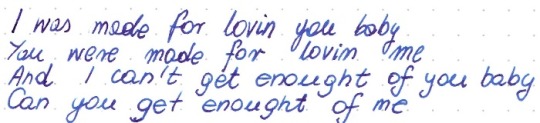 I was made for lovin you baby
You were made for lovin me
And I can't get enought of you baby
Can you get enought of me